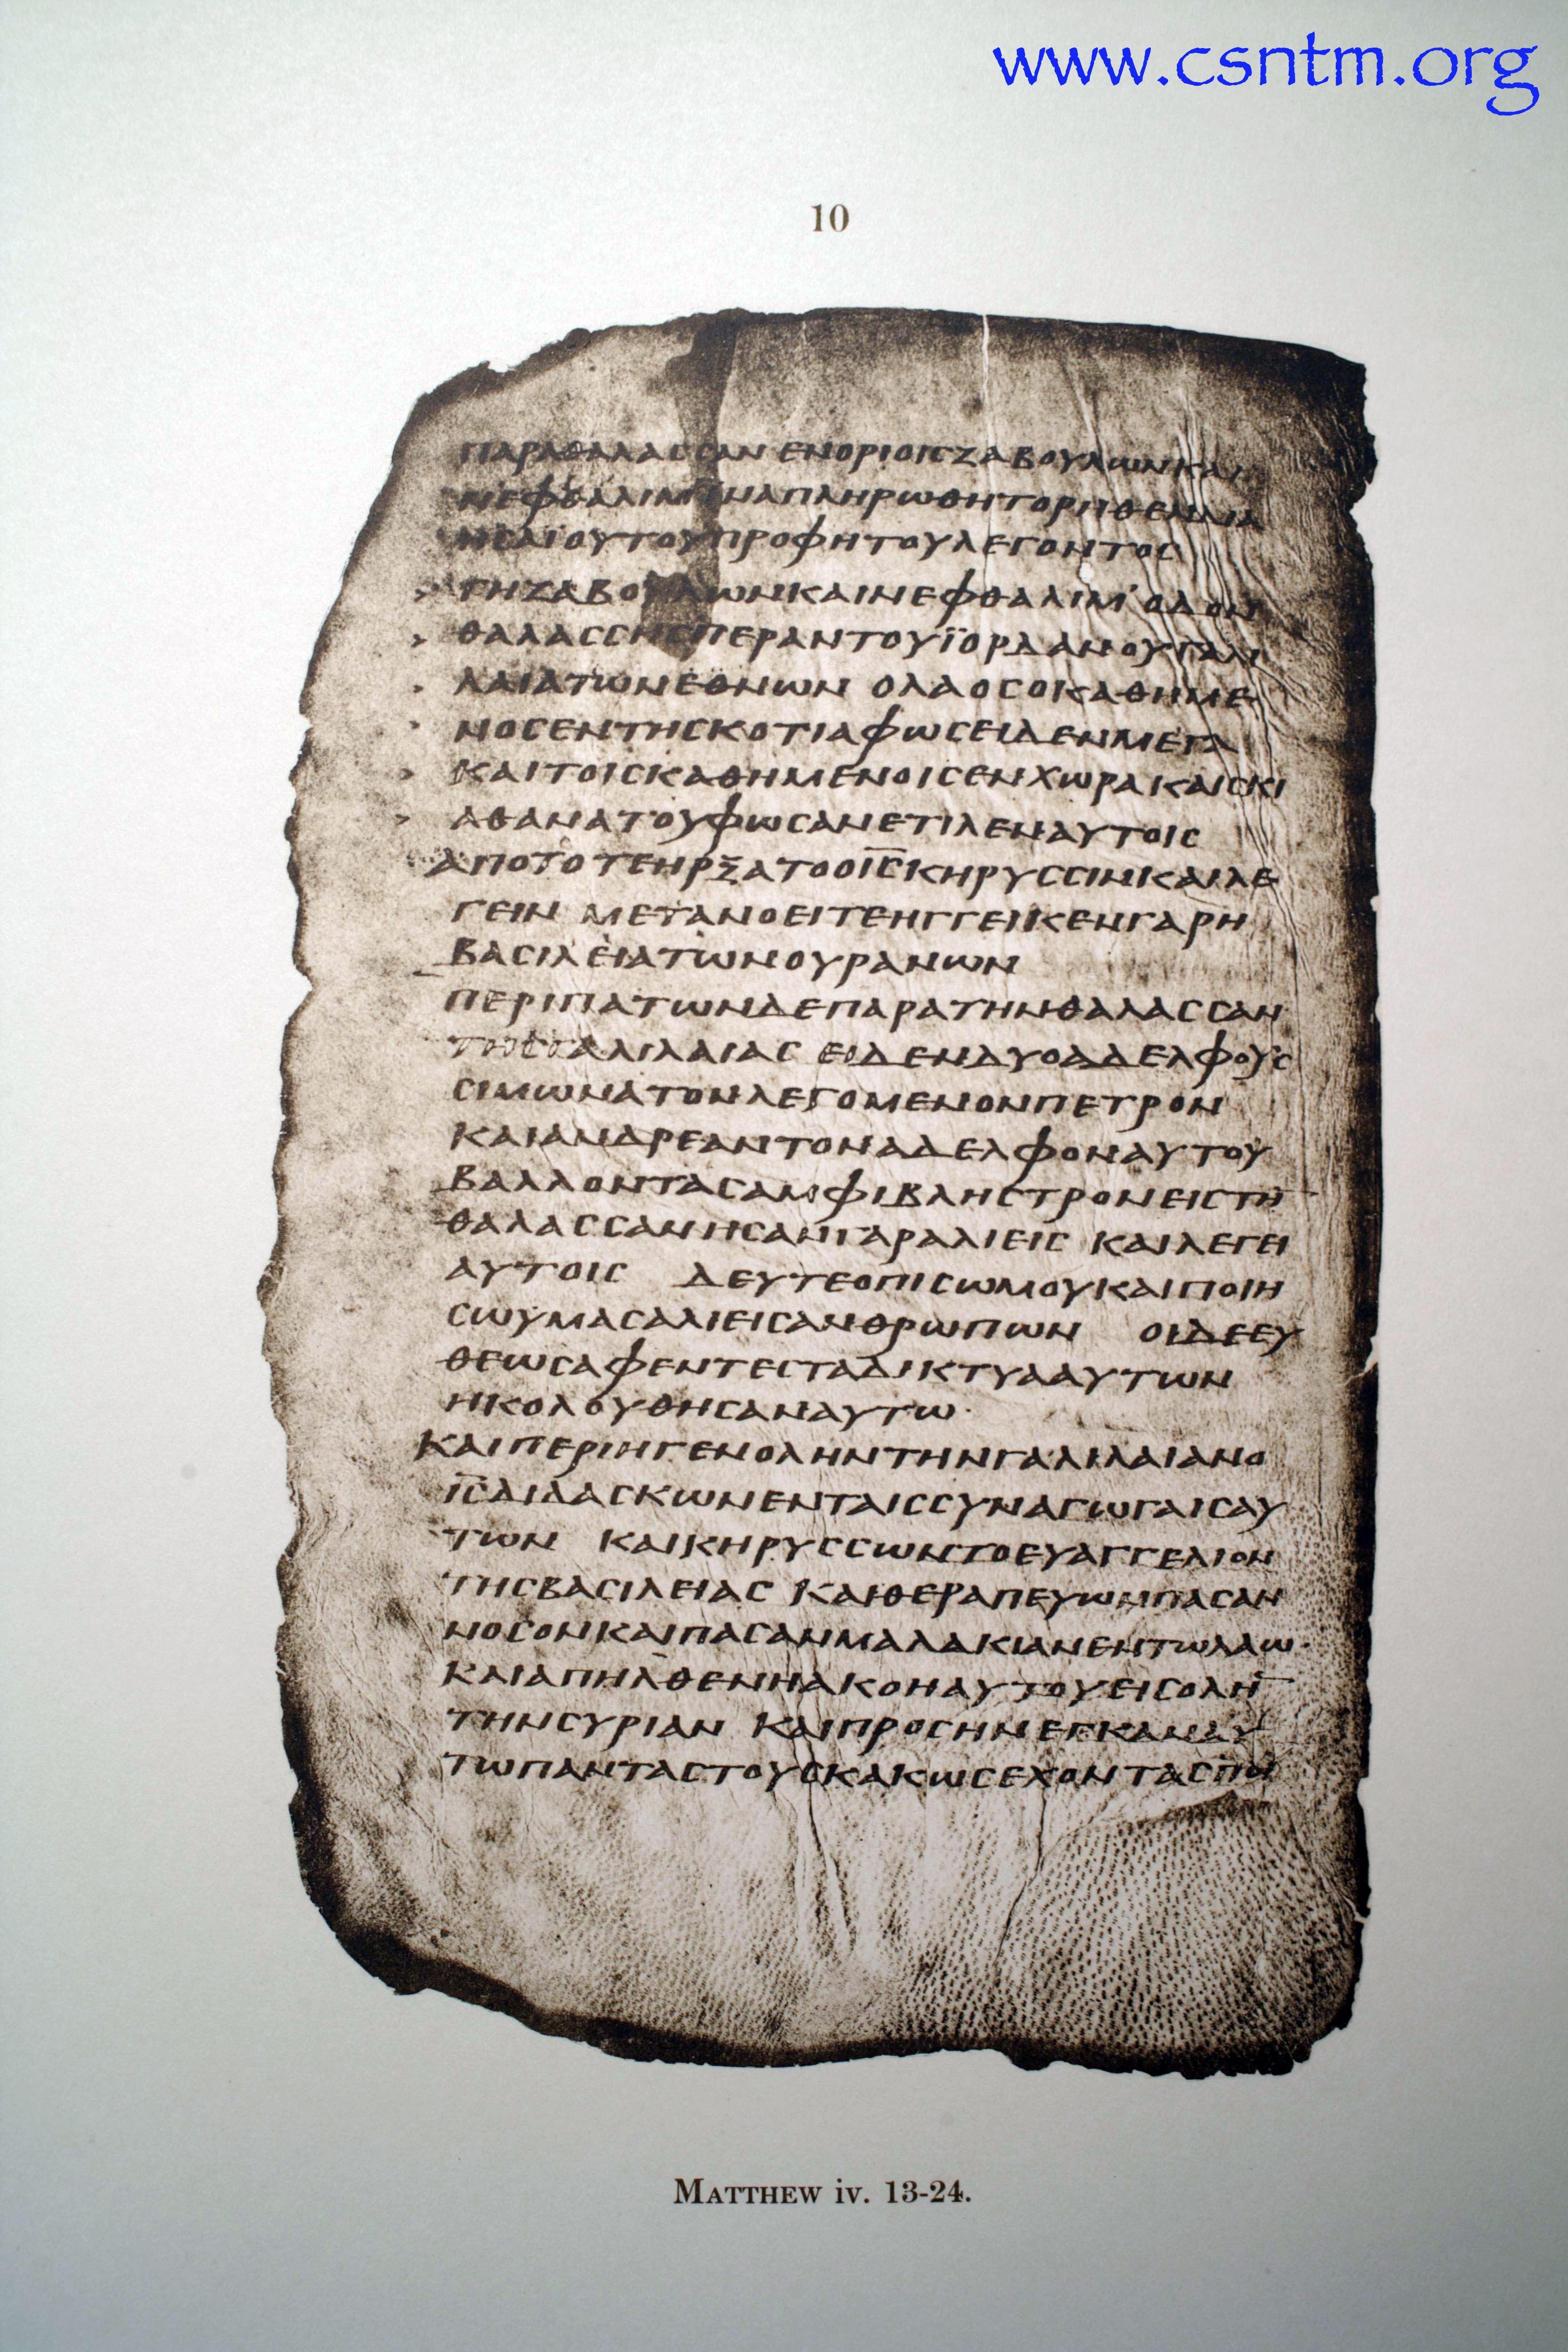 www.csntm.org
10
ΠΑΡΑΘΑΛΑССΑΝ ΕΝΟΡΙΟΙСΖΑΒΟΥΛΩΝΚΑΙ
ΝΕΦΘΑΛΙΜ ΙΝΑΠΛΗΡΩΘΗΤΟΡΗΘΕΝΔΙΑ
ΗСΑΪΟΥΤΟΥΠΡΟΦΗΤΟΥΛΕΓΟΝΤΟС
ΓΗΖΑΒΟΥΛΩΝΚΑΙΝΕΦΘΑΛΙΜ ΟΔΟΝ
ΘΑΛΑССΗСΠΕΡΑΝΤΟΥΪΟΡΔΑΝΟΥΓΑΛΙ
ΛΑΙΑΤΩΝΕΘΝΩΝ ΟΛΑΟСΟΚΑΘΗΜΕ
ΝΟСΕΝΤΗСΚΟΤΙΑΦΩСΕΙΔΕΝΜΕΓΑ
ΚΑΙΤΟΙСΚΑΘΗΜΕΝΟΙСΕΝΧΩΡΑΚΑΙСΚΙ
ΑΘΑΝΑΤΟΥΦΩСΑΝΕΤΙΛΕΝΑΥΤΟΙС
ΑΠΟΤΟΤΕΗΡΞΑΤΟΟΙ̅С̅ΚΗΡΥССΙΝΚΑΙΛΕ
ΓΕΙΝ ΜΕΤΑΝΟΕΙΤΕΗΓΓΕΙΚΕΝΓΑΡΗ
ΒΑСΙΛΕΙΑΤΩΝΟΥΡΑΝΩΝ
ΠΕΡΙΠΑΤΩΝΔΕΠΑΡΑΤΗΝΘΑΛΑССΑΝ
ΤΗСΓΑΛΙΛΑΙΑС ΕΙΔΕΝΔΥΟΑΔΕΛΦΟΥС
СΙΜΩΝΑΤΟΝΛΕΓΟΜΕΝΟΝΠΕΤΡΟΝ
ΚΑΙΑΝΔΡΕΑΝΤΟΝΑΔΕΛΦΟΝΑΥΤΟΥ
ΒΑΛΛΟΝΤΑСΑΜΦΙΒΛΗСΤΡΟΝΕΙСΤΗ̅
ΘΑΛΑССΑΝΗСΑΝΓΑΡΑΛΙΕΙС ΚΑΙΛΕΓΕΙ
ΑΥΤΟΙС ΔΕΥΤΕΟΠΙСΩΜΟΥΚΑΙΠΟΙΗ
СΩΥΜΑСΑΛΙΕΙСΑΝΘΡΩΠΩΝ ΟΙΔΕΕΥ
ΘΕΩСΑΦΕΝΤΕСΤΑΔΙΚΤΥΑΑΥΤΩΝ
ΗΚΟΛΟΥΘΗСΑΝΑΥΤΩ·
ΚΑΙΠΕΡΙΗΓΕΝΟΛΗΝΤΗΝΓΑΛΙΛΑΙΑΝΟ
Ι̅С̅ΔΙΔΑСΚΩΝΕΝΤΑΙССΥΝΑΓΩΓΑΙСΑΥ
ΤΩΝ ΚΑΙΚΗΡΥССΩΝΤΟΕΥΑΓΓΕΛΙΟΝ
ΤΗСΒΑСΙΛΕΙΑС ΚΑΙΘΕΡΑΠΕΥΩΝΠΑСΑΝ
ΝΟСΟΝΚΑΙΠΑСΑΝΜΑΛΑΚΙΑΝΕΝΤΩΛΑΩ·
ΚΑΙΑΠΗΛΘΕΝΗΑΚΟΗΑΥΤΟΥΕΙСΟΛΗ̅
ΤΗΝСΥΡΙΑΝ ΚΑΙΠΡΟСΗΝΕΓΚΑΝΑΥ
ΤΩΠΑΝΤΑСΤΟΥСΚΑΚΩСΕΧΟΝΤΑСΠΟΙ
MATTHEW iv. 13-24.